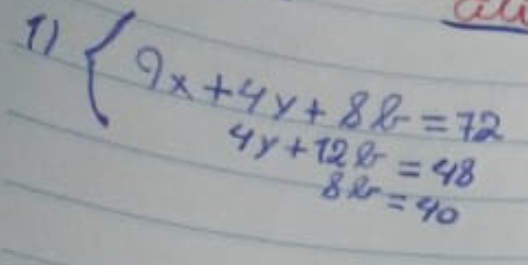 1) { 9x+4y+8b=72
4y+12b=48
8b=40